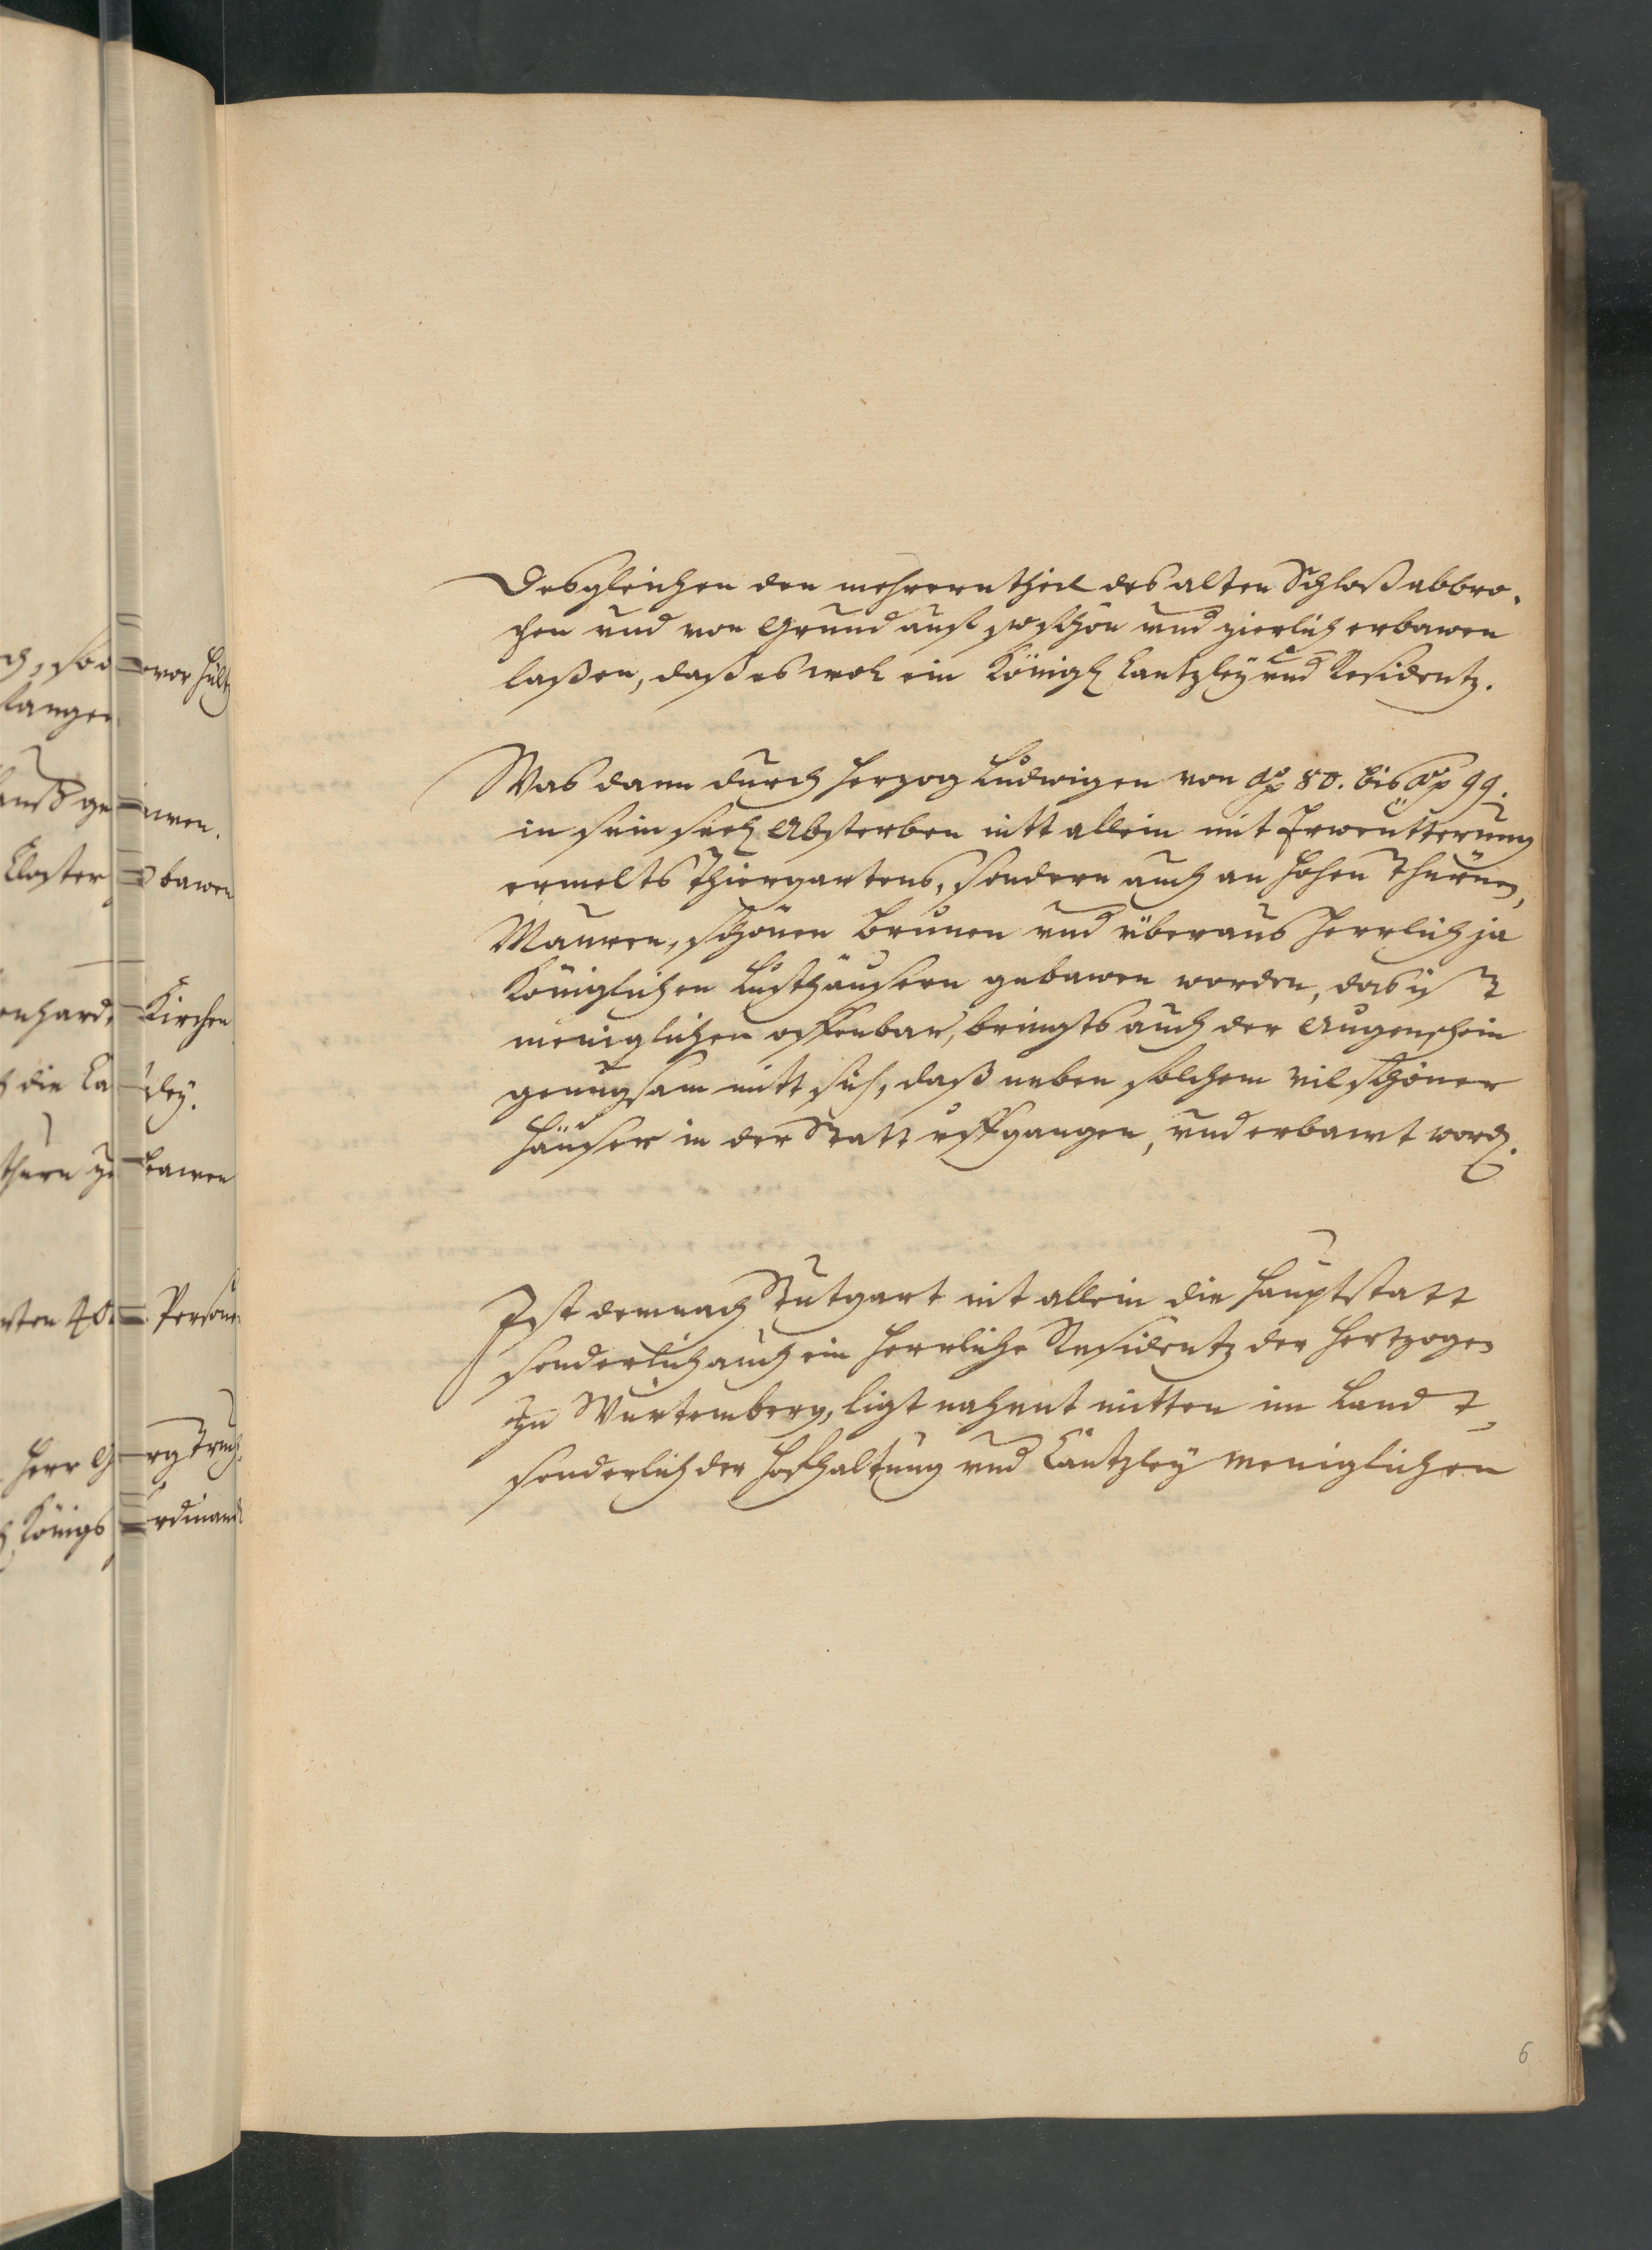 Desgleichen den mehrern theil des alten Schloß abbro-
chen vnd von Grund auff so schön vnd zierlich erbawen
laßen, daß es wol ein Königl Cantzley vnd Residentz.
Was dann durch Herzog Ludwigen von Ao 80. bis Ao 99.
in sein seel Absterben nitt allein mit Erweutterung
ermelts Thiergartens, sondern auch an hohen Thurnen,
Mauren, schönen Brunen vnd überaus herrlich ja
Königlichen Lusthäusern gebawen worden, das ist
meniglichen offenbar, bringts auch der Augenschein
genugsam mitt sich, daß neben solchem vil schöner
Häuser in der Statt vffgangen, vnd erbawt word.
Ist demnach Stutgart nit allein die Hauptstatt
sonderlich auch ein herrliche Residentz der Hertzogen
zu Würtemberg, ligt nahent mitten im Landt,
sonderlich der Hoffhaltung vnd Cantzley meniglichen
6